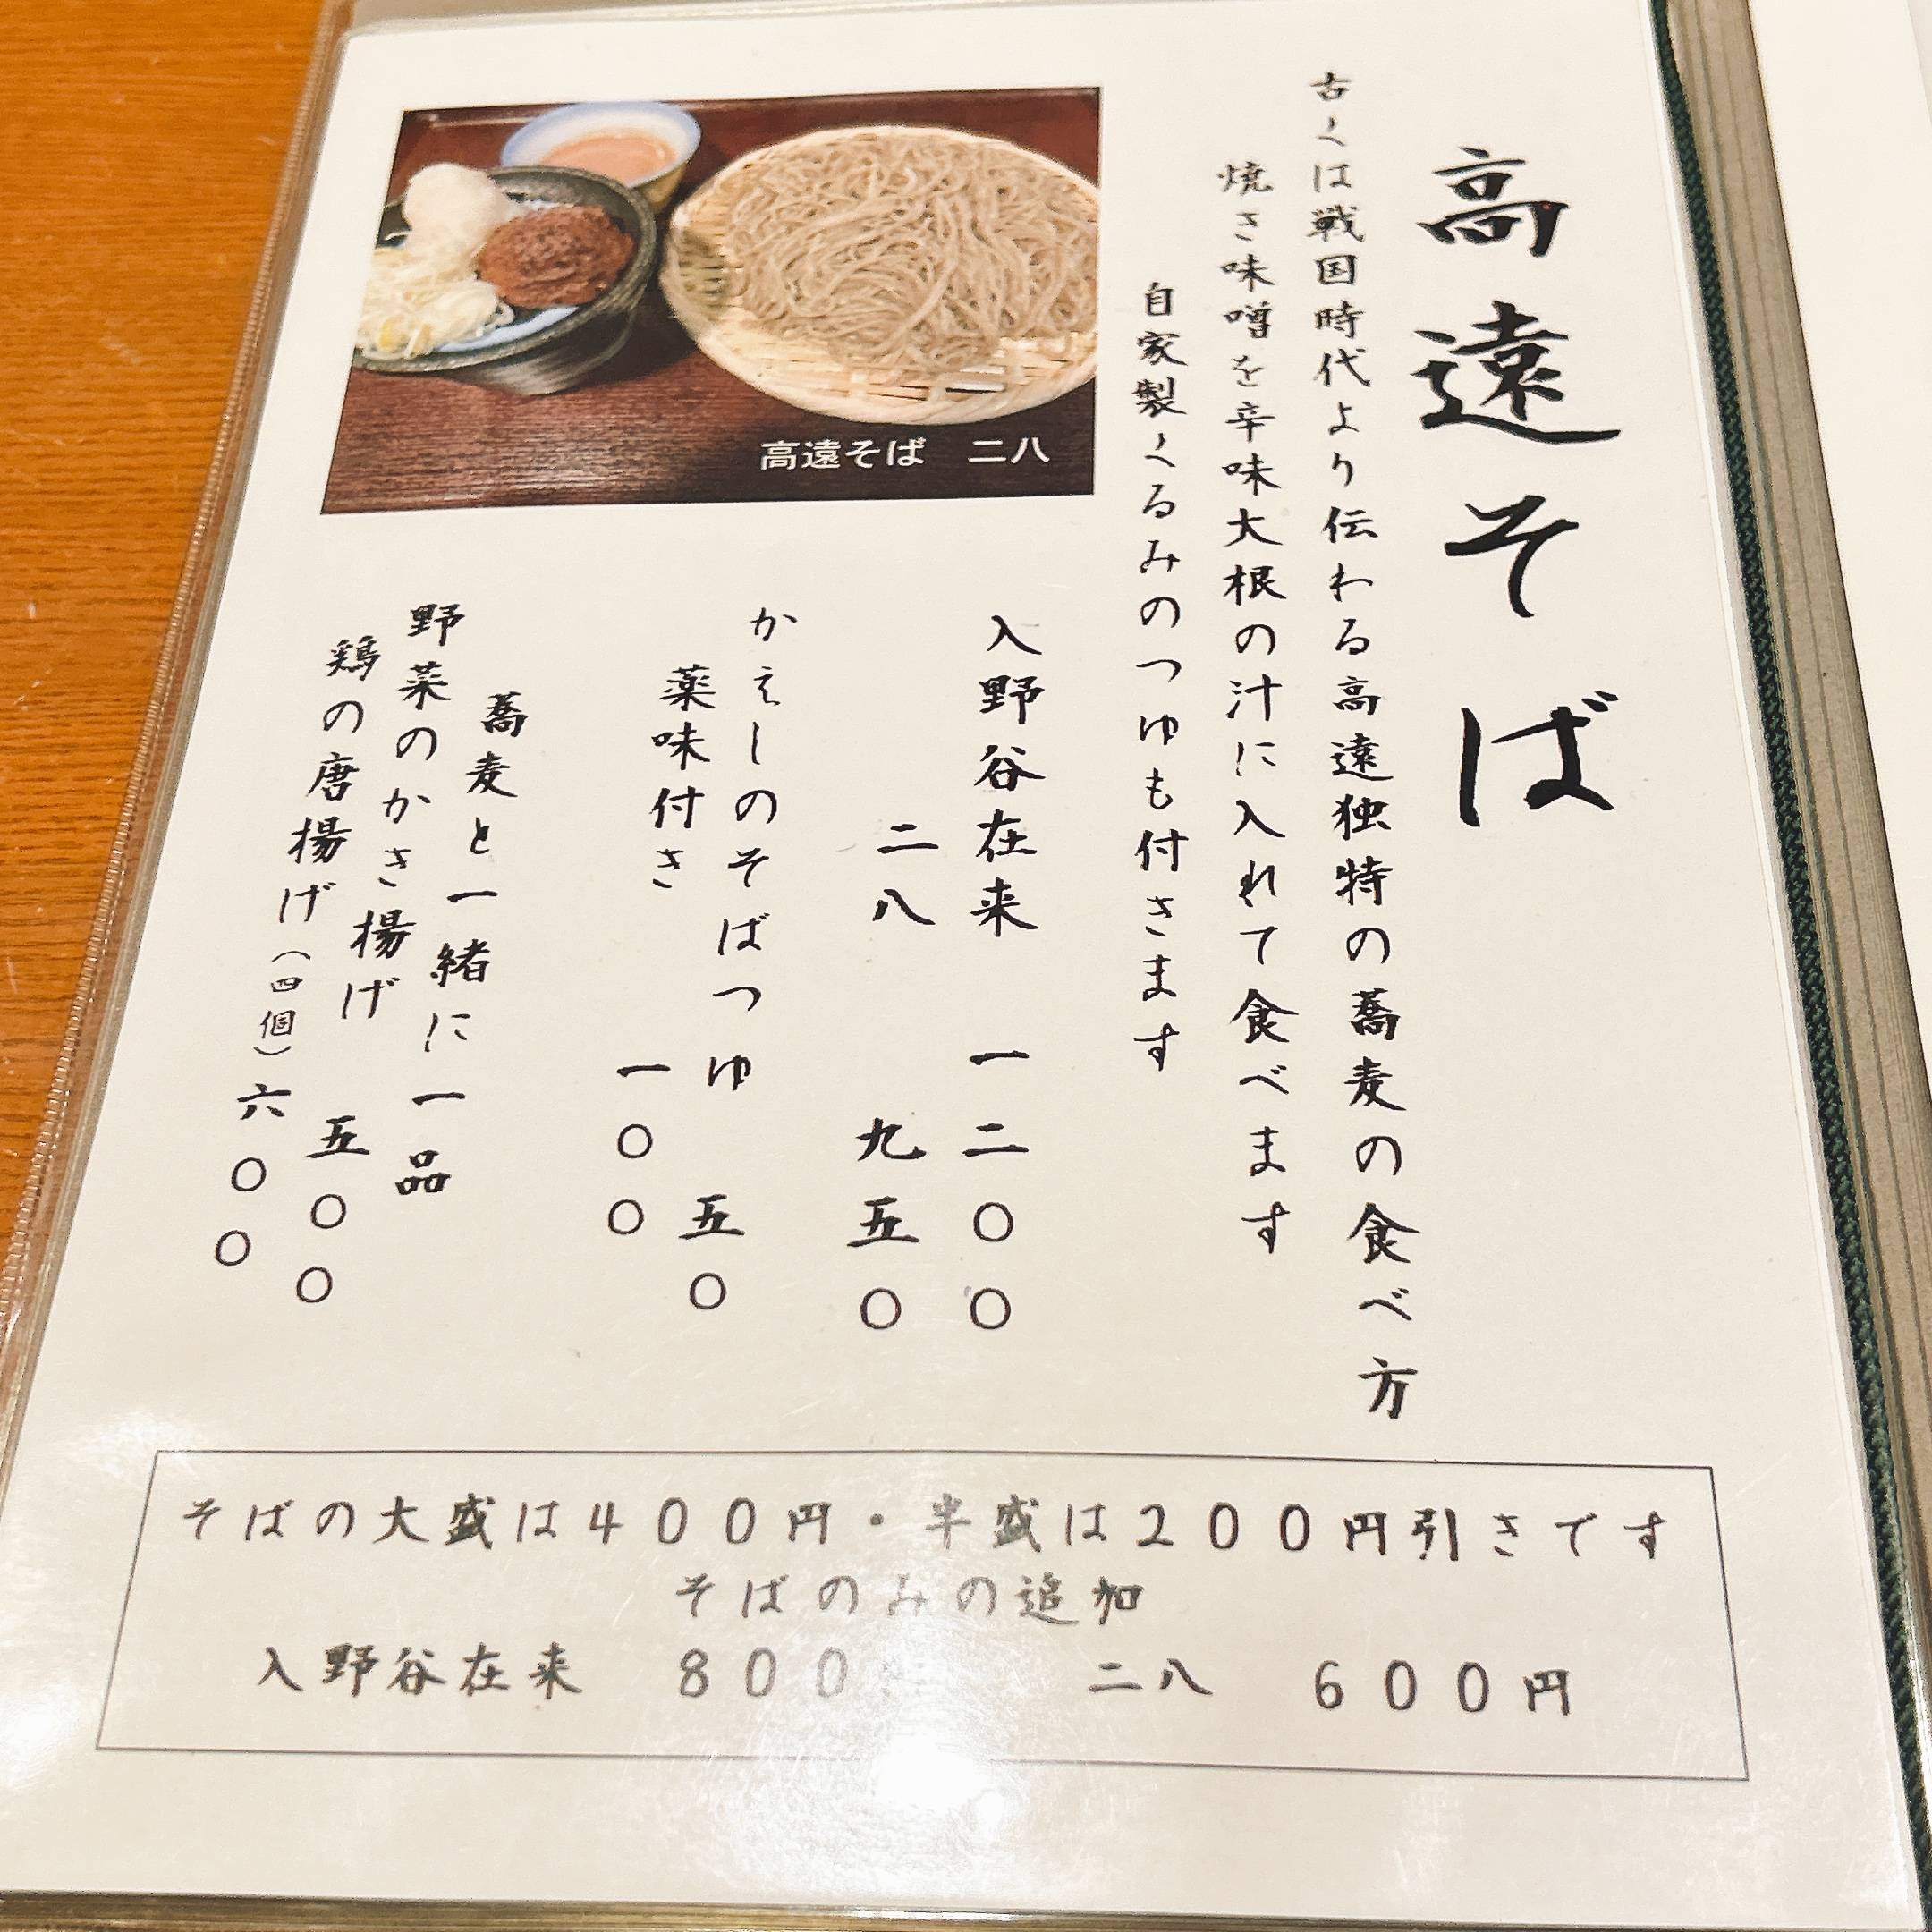 高遠そば
古くは戦国時代より伝わる高遠独特の蕎麦の食べ方
焼き味噌を辛味大根の汁に入れて食べます
自家製くるみのつゆも付きます
高遠そば 二八
入野谷在来 一二〇〇
二八 九五〇
かえしのそばつゆ 五〇
薬味付き 一〇〇
蕎麦と一緒に一品
野菜のかき揚げ 五〇〇
鶏の唐揚げ（四個）六〇〇
そばの大盛は400円・半盛は200円引きです
そばのみの追加
入野谷在来 800 二八 600円